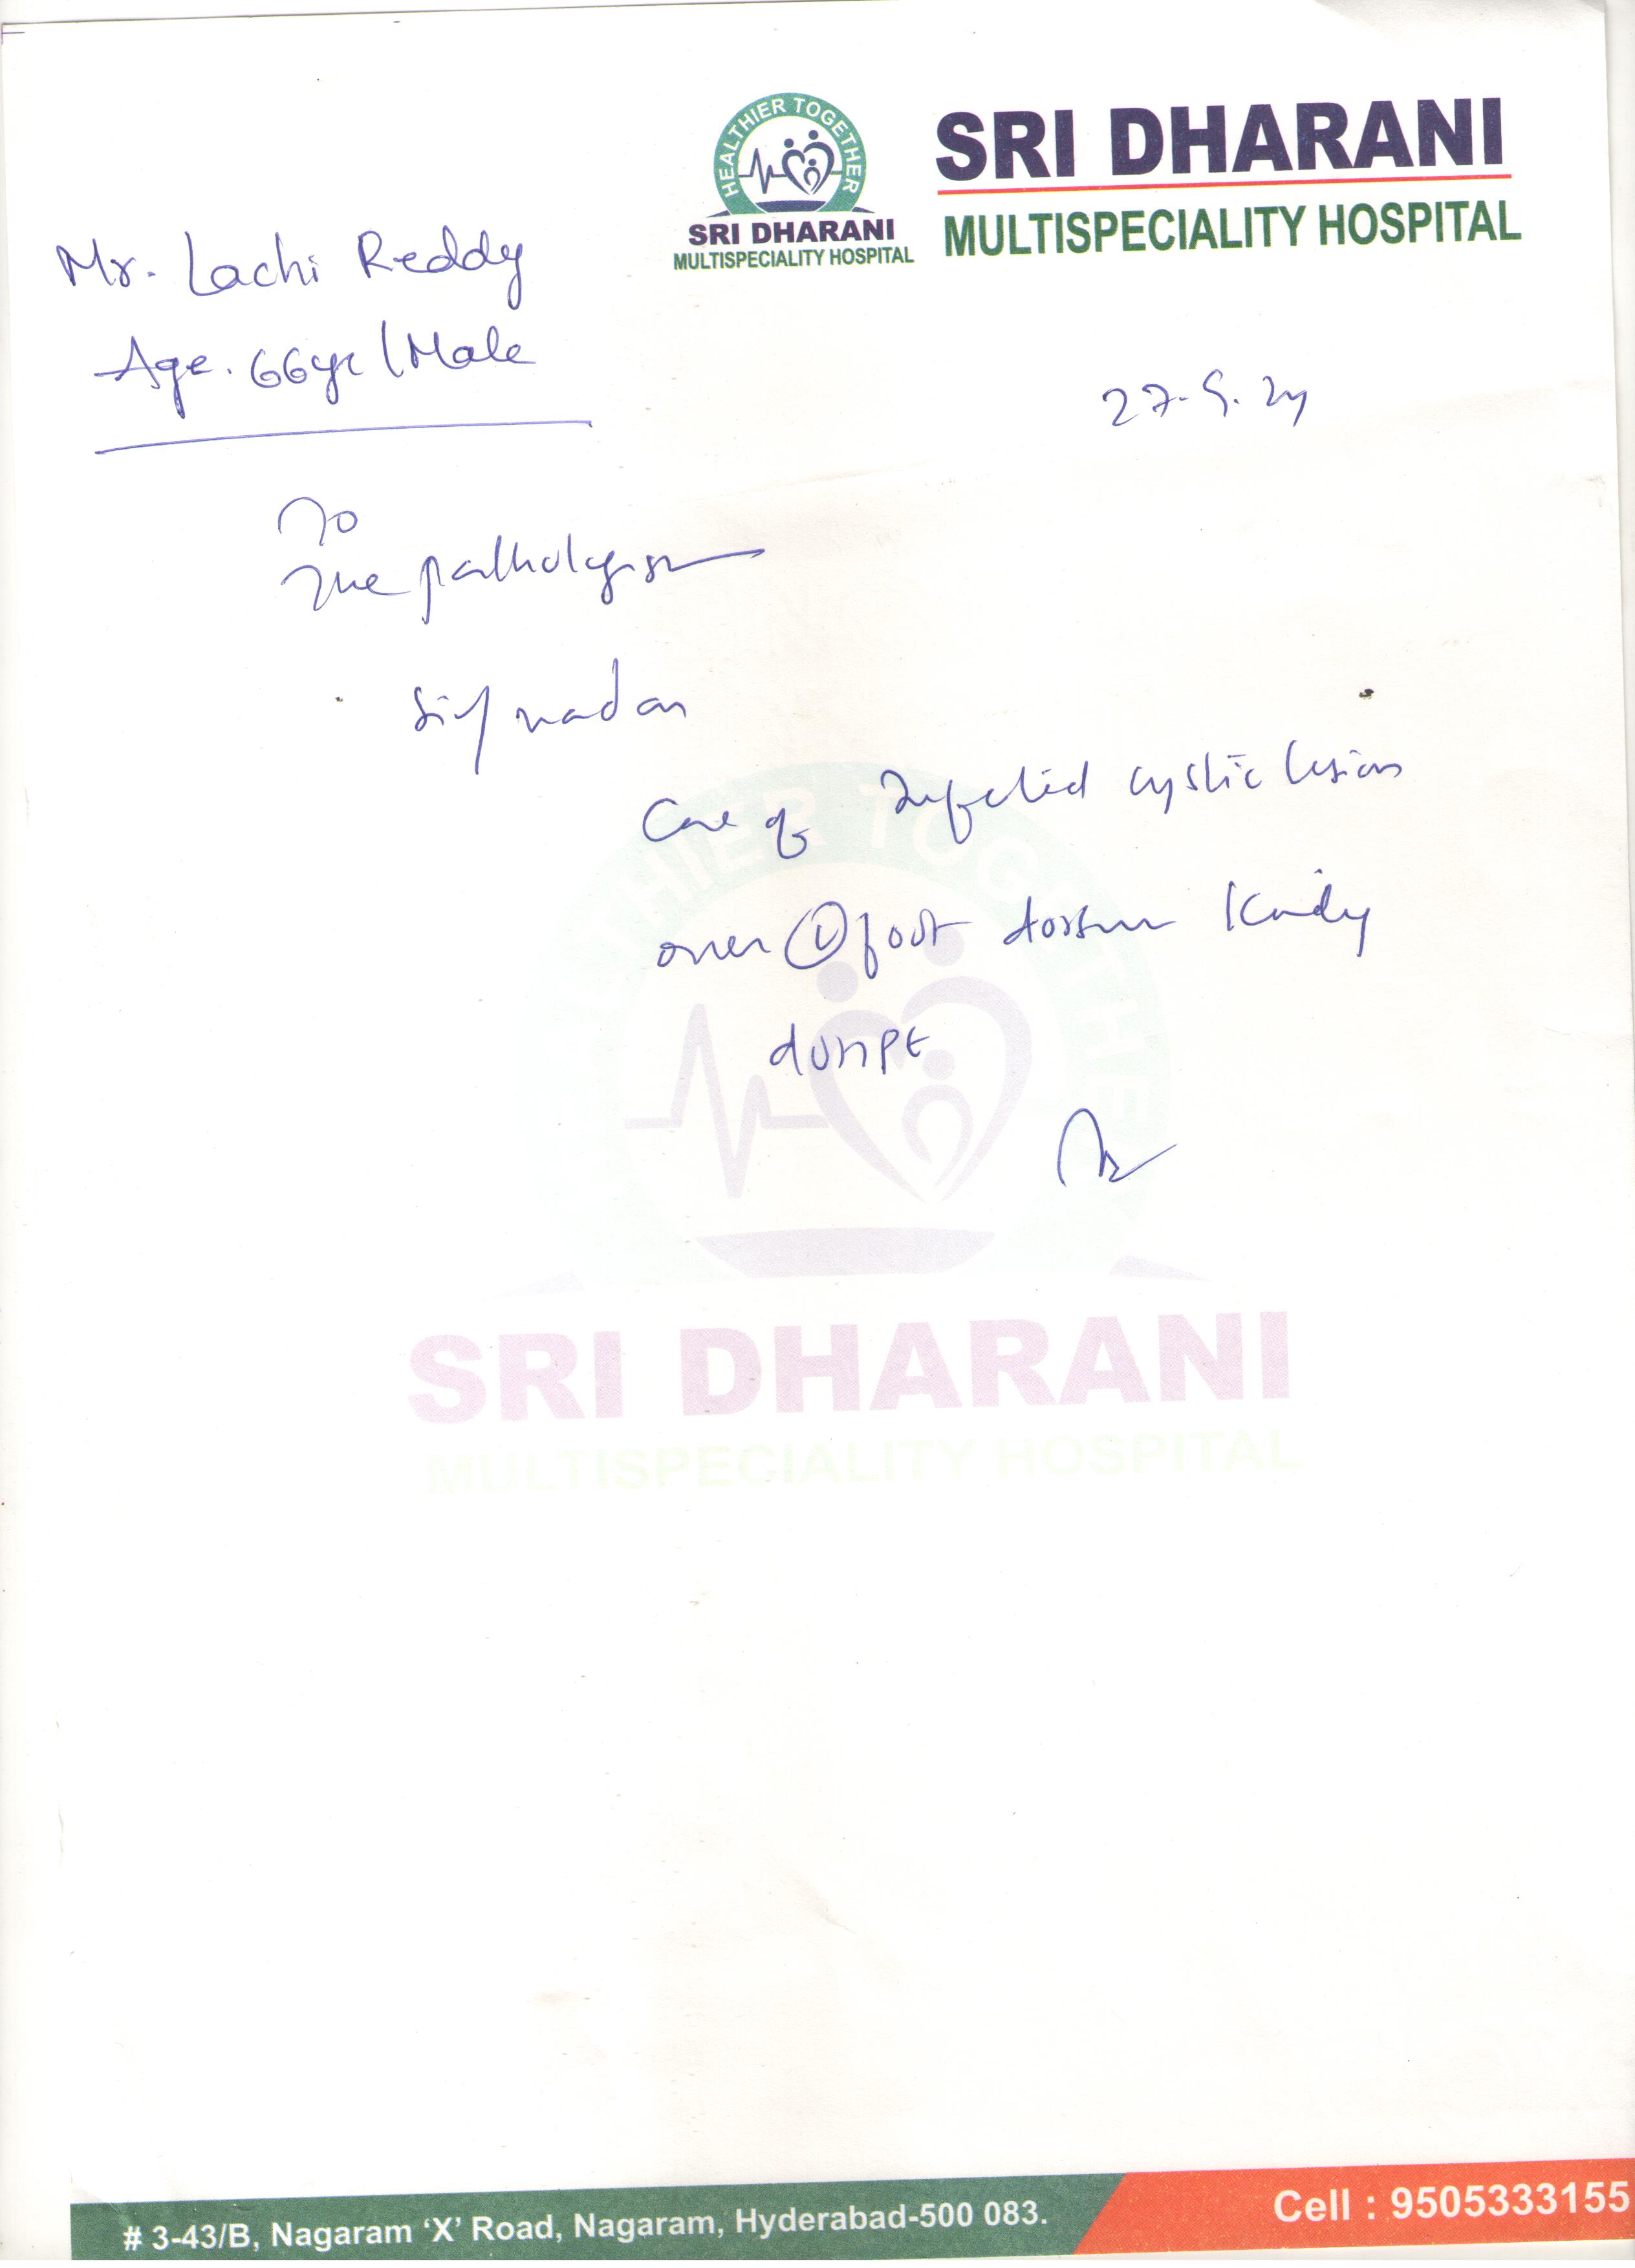 HEALTHIER TOGETHER
SRI DHARANI
MULTISPECIALITY HOSPITAL
SRI DHARANI
MULTISPECIALITY HOSPITAL
Mr. Lachi Reddy
Age. 66yr / Male
27.5.24
To
The pathologist
Sir/madam
Case of Infected cystic lesion
over (L) foot dorsum Kindly
do HPE
HEALTHIER TOGETHER
SRI DHARANI
MULTISPECIALITY HOSPITAL
# 3-43/B, Nagaram ‘X’ Road, Nagaram, Hyderabad-500 083.
Cell : 9505333155